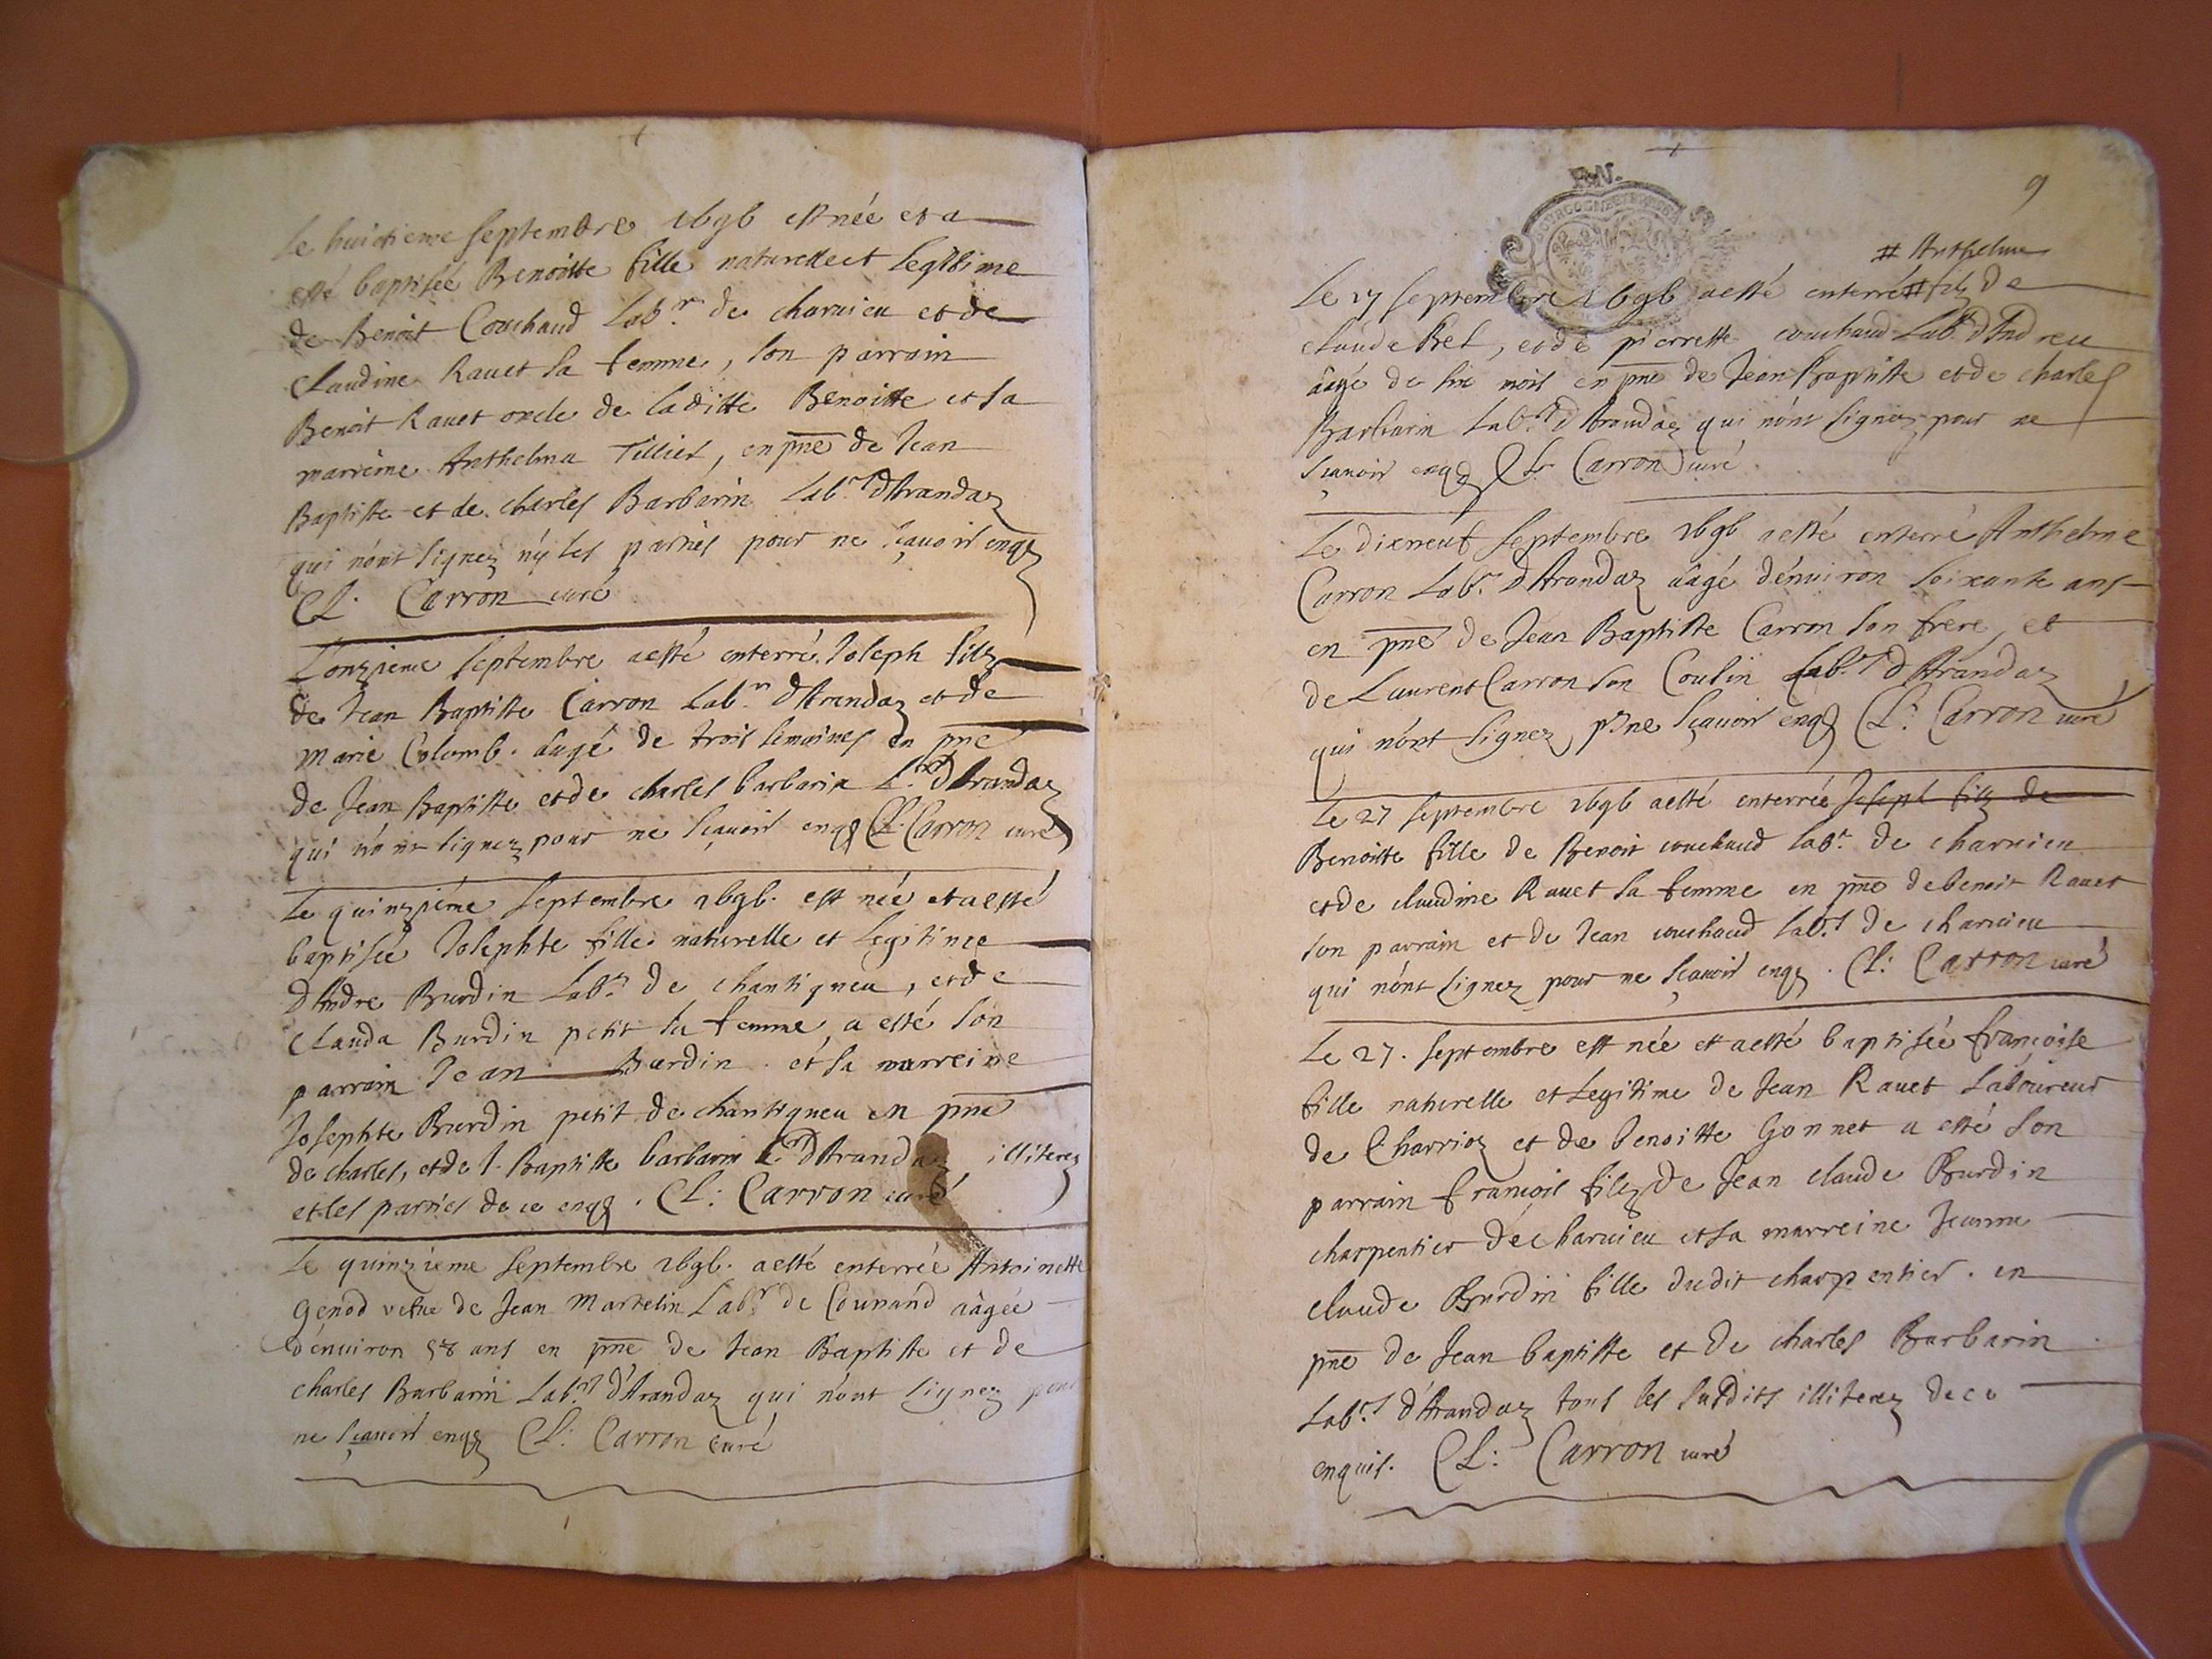 Le huictieme septembre 1696 est née et a
esté baptisée Benoitte fille naturelle et Legitime
de Benoit Couchaud Lab.r de charvieu et de
Claudine Ravet sa femme, son parrain
Benoit Ravet oncle de laditte Benoitte et sa
marreine Anthelma Tillier, en pnce de Jean
Baptiste et de charles Barbarin Lab.rs d'Arandaz
qui n'ont signez n'y les parties pour ne sçavoir enqz
Cl. Carron curé
L'onzieme septembre a esté enterré Joseph filz
de Jean Baptiste Carron Lab.r d'Arandaz et de
Marie Colomb. âagé de trois semaines en pnce
de Jean Baptiste et de charles barbarin L.rs d'Arandaz
qui n'ont signez pour ne sçavoir enqz Cl. Carron curé
Le quinziéme septembre 1696. est née et a esté
baptisée Josephte fille naturelle et Legitime
d'Andre Burdin Lab.r de chantigneu, et de
Clauda Burdin petit sa femme, a esté son
parrain Jean Burdin. et sa marreine
Josephte Burdin petit de chantigneu en pnce
de charles, et de J. Baptiste barbarin L.rs d'Arandaz illiterez
et les parties de ce enqz. Cl: Carron curé
Le quinzieme septembre 1696. a esté enterrée Antoinette
Genod vefve de Jean Martelin Lab.r de Counand aâgée
d'environ 58 ans en pnce de Jean Baptiste et de
charles Barbarin Lab.rs d'Arandaz qui n'ont signez pour
ne sçavoir enqz Cl: Carron curé
9
# Anthelme
Le 17 septembre 1696 a esté enterré # filz de
claude Bel, et de pierrette couchaud Lab.r d'Indrieu
âagé de six mois en pnce de Jean Baptiste et de charles
Barbarin Lab.rs d'Arandaz qui n'ont signez pour ne
sçavoir enqz Cl. Carron curé
Le dixneuf septembre 1696 a esté enterré Anthelme
Carron Lab.r d'Arandaz aâgé d'environ soixante ans
en pnce de Jean Baptiste Carron son frere, et
de Laurent Carron son Cousin Lab.rs d'Arandaz
qui n'ont signez p.r ne sçavoir enqz Cl: Carron curé
Le 27 septembre 1696 a esté enterrée Joseph filz de
Benoitte fille de Benoit couchaud lab.r de charvieu
et de claudine Ravet sa femme en pnce de benoit Ravet
son parrain et de Jean couchaud lab.rs de charvieu
qui n'ont signez pour ne sçavoir enqz. Cl: Carron curé
Le 27. septembre est née et a esté baptisée françoise
fille naturelle et Legitime de Jean Ravet Laboureur
de Charrioz et de benoitte Gonnet a esté son
parrain françois filz de Jean claude Burdin
charpentier de charvieu et sa marreine Jeanne
claude Burdin fille dudit charpentier. en
pnce de Jean baptiste et de charles Barbarin
Lab.rs d'Arandaz tous les susdits illiterez de ce
enquis. Cl: Carron curé